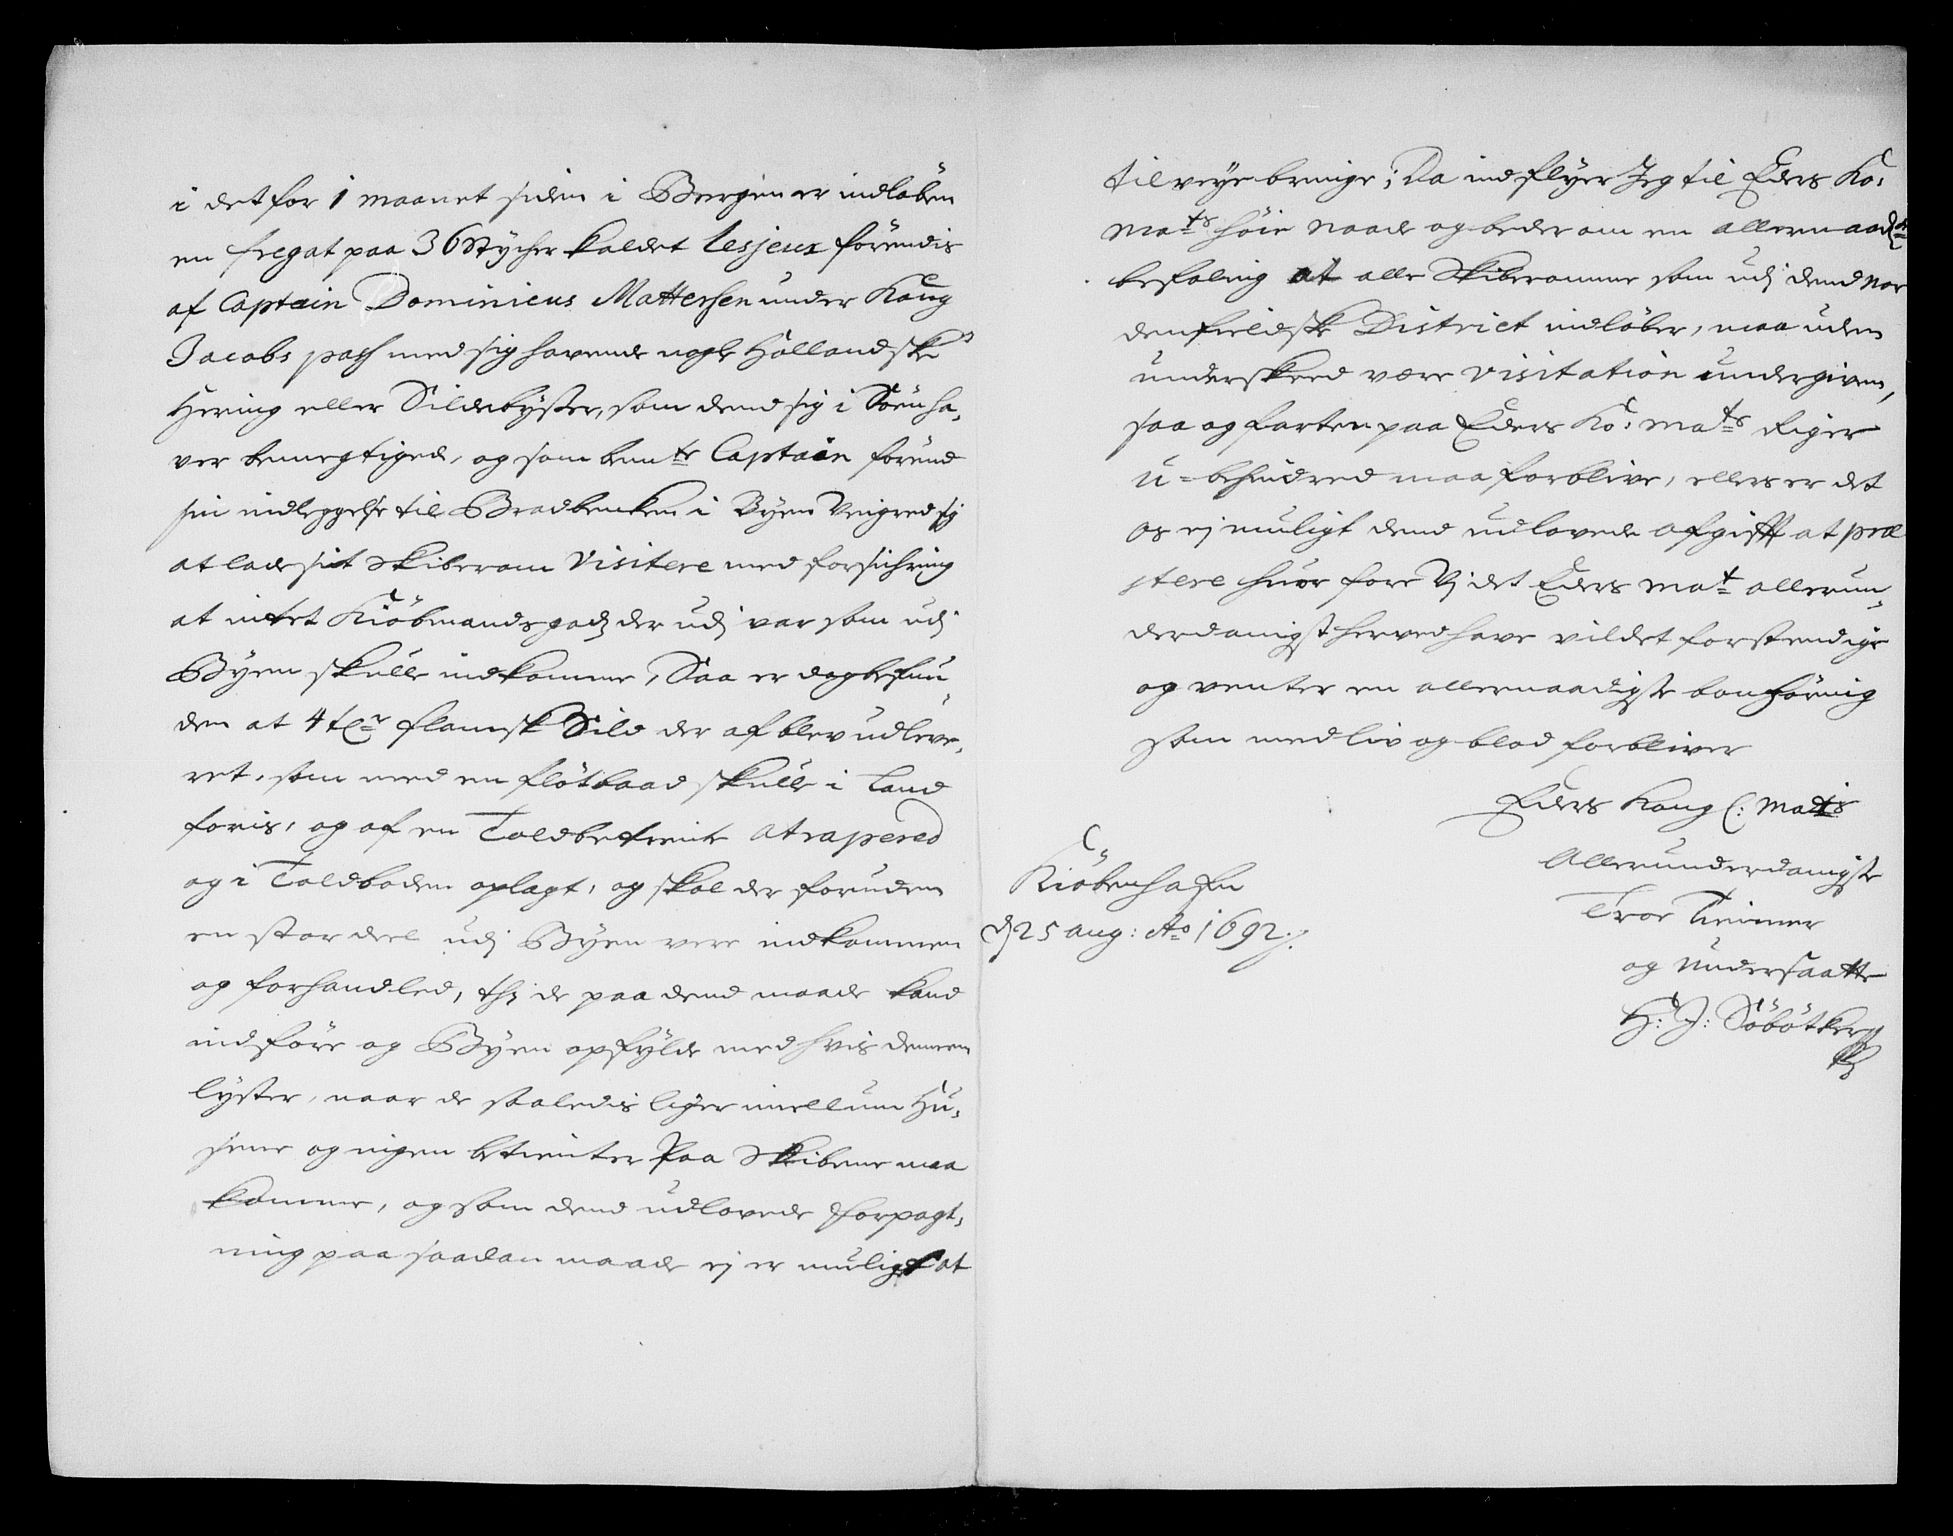 i det for 1 maanet siden i Bergen er indløben
en fregat paa 36 Stycher kaldet Lesjeux førendis
af Captein Dominicus Mattersen under Kong
Jacobs pass med sig havende nogle Hollandske
Hering eller Sildebyser, som dend sig i Søen ha¸
ver bemegtiged, og som bemte Captain formed
sin indleggelse til Bradbencken i Byen Veigred sig
at lade sit Skiberom Visitere med forsichring
at intet Kiøbmandsgods der udj var som udj
Byen skulle indkomme, Saa er dog befun¸
den at 4 tr flamsk Sild der af blev udleve¸
ret, som med en fløtbaad skulle i Land
føris, og af en Toldbetient atrapered
og i Toldboden oplagt, og skal der foruden
en stor deel udj Byen vere indkommen
og forhandled, thj de paa dend maade kand
indføre og Byen opfylde med hvis dennem
lyster, naar de saaledis liger imellum Hu¸
sene og ingen betienter Paa Skibene maa
komme, og som dend udlovede Forpagt¸
ning paa saadan maade ej er muligt at
tilveye bringe; Da indflyer Jeg til Eders Ko:
Mats høie Naade og beder om en allernaadste
befaling at alle Skiberomme som udj dend Nor
denfieldske District indløber, maa uden
underskeed være Visitation undergiven,
saa og farten paa Eders Ko: Mats Riger
u-behindred maa forblive, ellers er det
os ej muligt dend udlovede afgifft at præ
stere huor fore Vj det Eders Mat allerun¸
derdanigst herved have vildet forstendige
og venter en allernaadigste bønhøring
som med liv og blod forbliver
Eders Kongl: Matis
Allerunderdanigste
Troe Tienner
og Undersaatte
H: J: Søbøtker
Kiøbenhafn
d 25 Aug: Ao 1692.